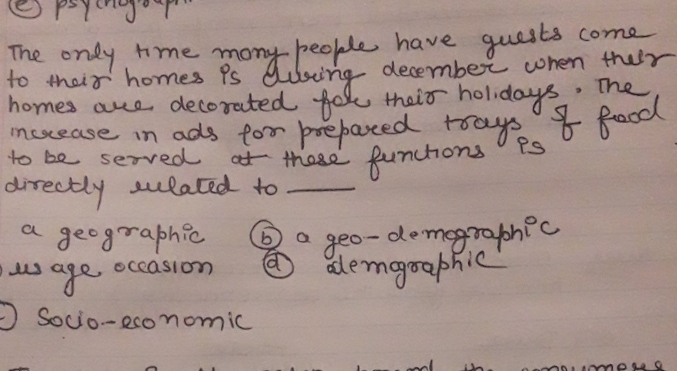 ⓔ psychograph
The only time many people have guests come
to their homes is during december when their
homes are decorated for their holidays. The
increase in ads for prepared trays of food
to be served at these functions is
directly related to ___
a geographic ⓑ a geo-demographic
usage occasion ⓓ demographic
socio-economic
the consumers